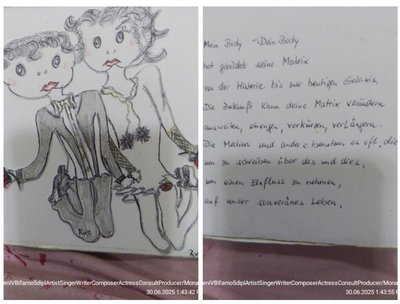 RvB
RvB
eniVBifamo5diplArtistSingerWriterComposerActressConsultProducer/Mona
30.06.2025 1:43:42
Mein Body - Dein Body
hat gebildet seine Matrix
von der Historie bis zur heutigen Galaxis.
Die Zukunft kann deine Matrix verändern
ausweiten, einengen, verkürzen, verlängern.
Die Medien und andere benutzen es oft, die
um zu schreiben über das und dies,
um einen Einfluss zu nehmen,
auf unser souveränes Leben,
eniVBifamo5diplArtistSingerWriterComposerActressConsultProducer/Mona
30.06.2025 1:43:55